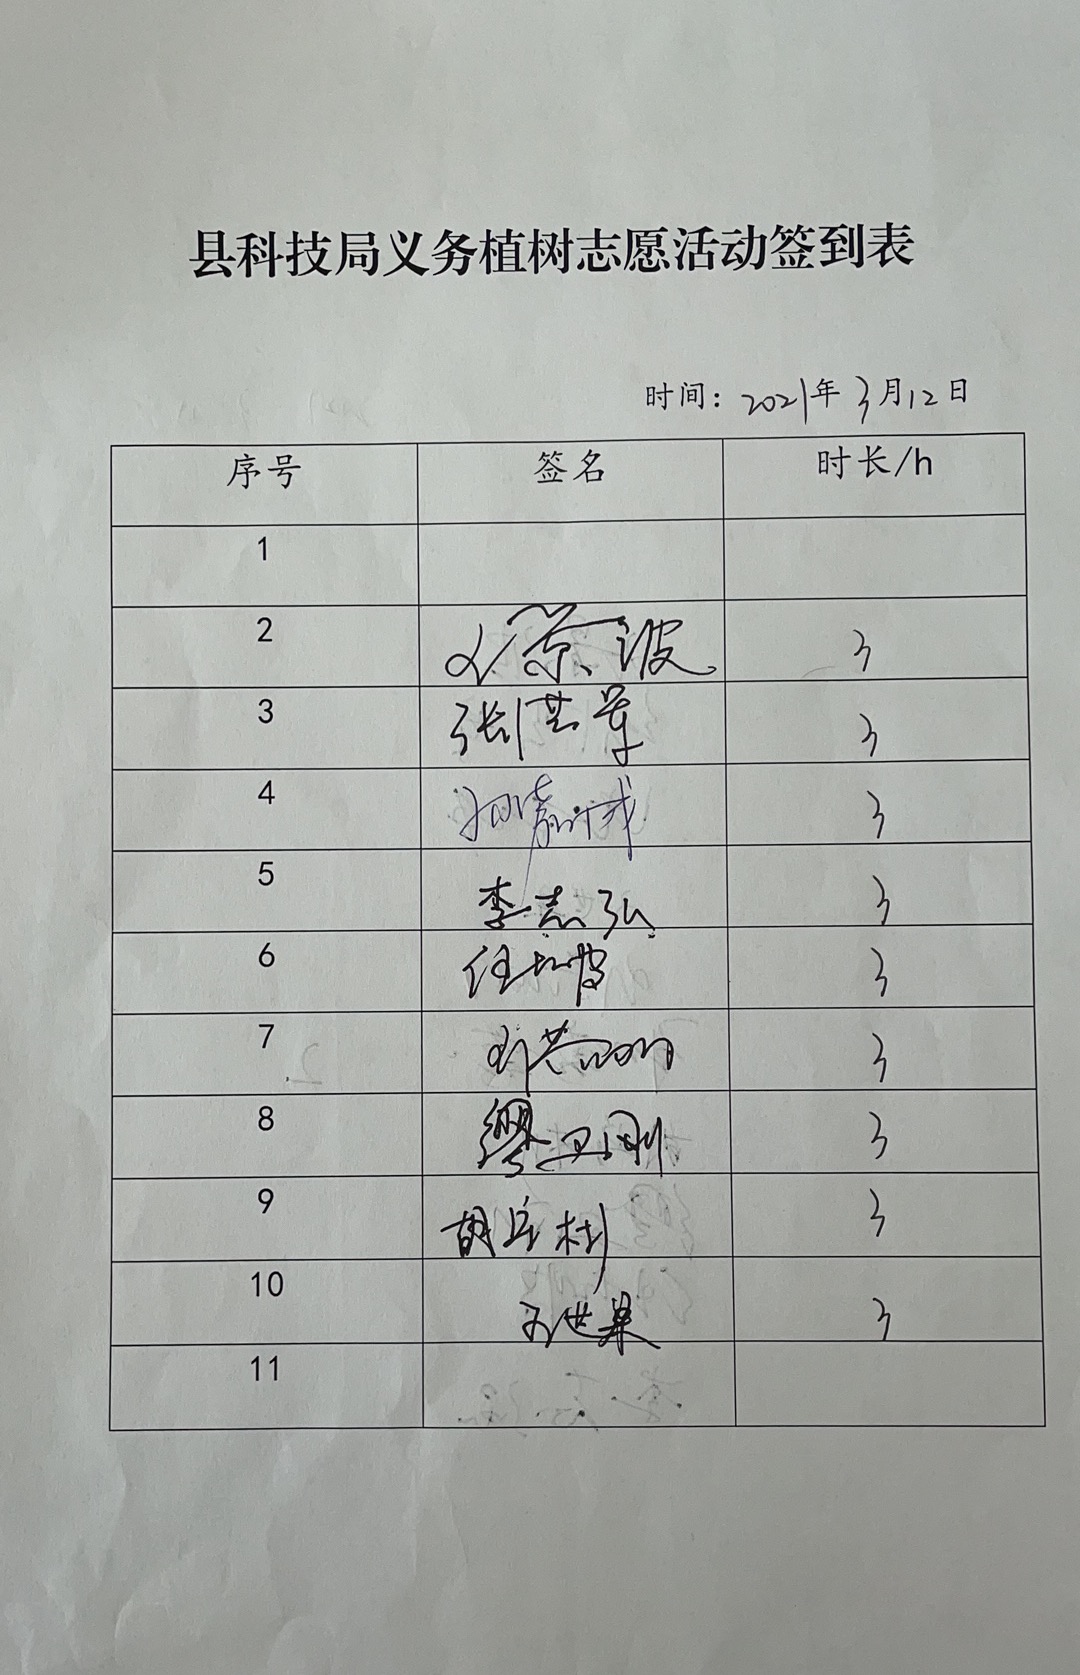 县科技局义务植树志愿活动签到表
时间：2021年3月12日
序号 签名 时长/h
1
2 波 3
3 张洪军 3
4 3
5 李志弘 3
6 任 3
7 3
8 缪卫刚 3
9 胡兵彬 3
10 王世杲 3
11